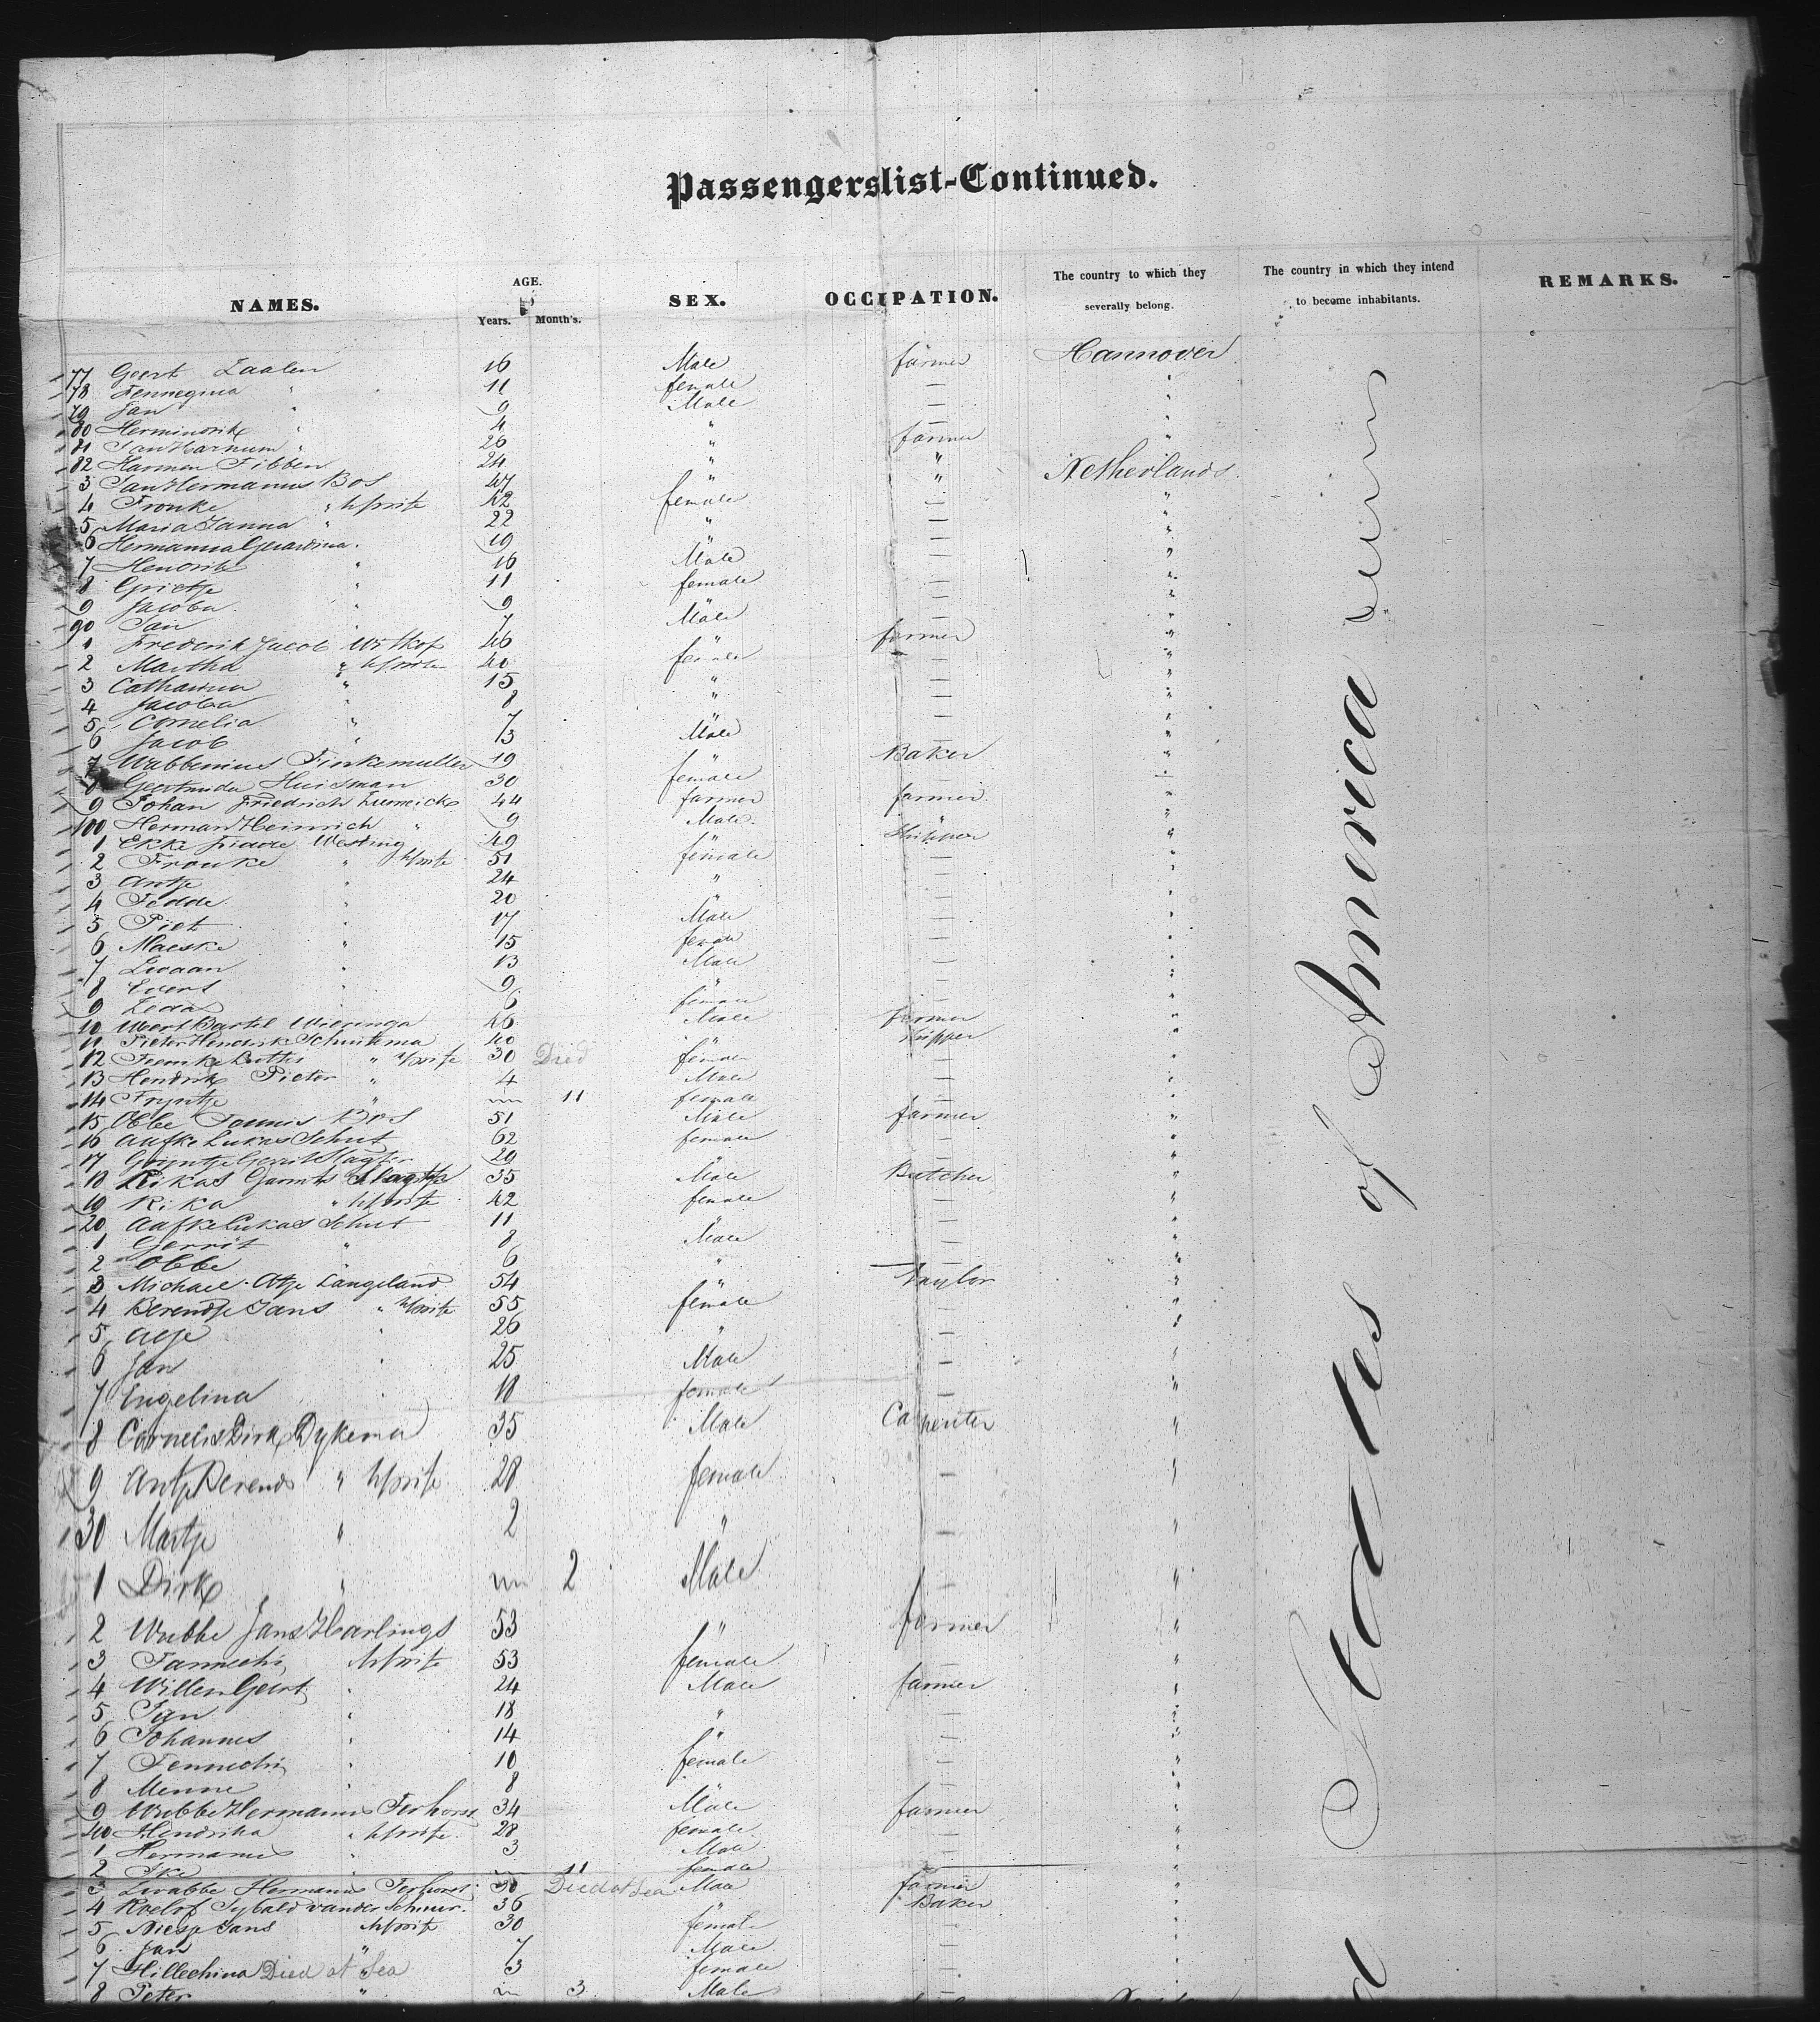 Passengerslist-Continued.
NAMES. AGE. Years. Month's. SEX. OCCUPATION. The country to which they severally belong. The country in which they intend to become inhabitants. REMARKS.
77 Geert Zaalen 16 Male farmer Hannover
78 Fennegina " 11 female — "
79 Jan " 9 Male — "
80 Hermindrik " 4 " — "
81 Jan Harnum " 26 " farmer "
82 Harmen Tibben 24 " "
3 Jan Hermanus Bos 47 " " Netherlands
4 Frouke " Wife 42 female — "
5 Maria Janna " 22 " — "
6 Hermanna Gerardina " 19 — "
7 Hendrik " 16 Male — "
8 Grietje " 11 female — "
9 Jacoba " 9 — "
90 Jan " 7 Male — "
1 Frederik Jacob Witkop 46 " farmer "
2 Martha " Wife 40 female — "
3 Catharina " 15 " — "
4 Jacoba " 8 " — "
5 Cornelia " 7 — "
6 Jacob " 3 Male — "
7 Wubbenius Finkemuller 19 " Baker "
8 Geertruida Huisman 30 female — "
9 Johan Friedrich 44 farmer farmer "
100 Herman Heinrich " 9 Male "
1 Ekke Westing 49 " Skipper "
2 Frouke " Wife 51 female — "
3 Antje " 24 " — "
4 Fedde " 20 — "
5 Piet " 17 Male — "
6 Maeske " 15 female — "
7 " 13 Male — "
8 Evert " 9 " — "
9 " 6 female — "
10 Wert Bartel Wieringa 46 Male farmer "
11 Pieter Hendrik Schuitema 40 " Skipper "
12 Feemke " Wife 30 Died female — "
13 Hendrik Pieter " 4 Male — "
14 Fryntje " 11 female — "
15 Obbe Tonnis Bos 51 Male farmer "
16 Aafke Lukas Schut 62 female — "
17 Gerrit Slagter 29 — "
18 Rikas Garrits Slagter 35 Male Butcher "
19 Rika " Wife 42 female — "
20 Aafke Lukas Schut 11 " — "
1 Gerrit " 8 Male — "
2 Obbe 6 " — "
3 Michael Atje Langeland 54 " Taylor "
4 Berendje Jans " Wife 55 female — "
5 Altje " 26 " — "
6 Jan " 25 Male — "
7 Engelina " 18 female — "
8 Cornelis Dirk Dykema 35 Male Carpenter "
9 Antje Berends " Wife 28 female — "
30 Martje " 2 " — "
1 Dirk " 2 Male — "
2 Wubbe Jans Harlings 53 " farmer "
3 Jannechi Wife 53 female — "
4 Willem Geert " 24 Male farmer "
5 Jan " 18 " — "
6 Johannes " 14 " — "
7 Fennechi " 10 female — "
8 Menne " 8 — "
9 Wubbe Hermanus Terhorst 34 Male farmer "
40 Hendrika " Wife 28 female — "
1 Hermanus " 3 Male — "
2 Ike " 11 female — "
3 Hermanus Terhorst 30 Died at Sea Male farmer "
4 Roelof Sybold vander Schuur 36 " Baker "
5 Niesje Jans Wife 30 female — "
6 Jan " 7 Male — "
7 Hillechina Died at Sea 3 female — "
8 Peter " 3 Male — "
States of America